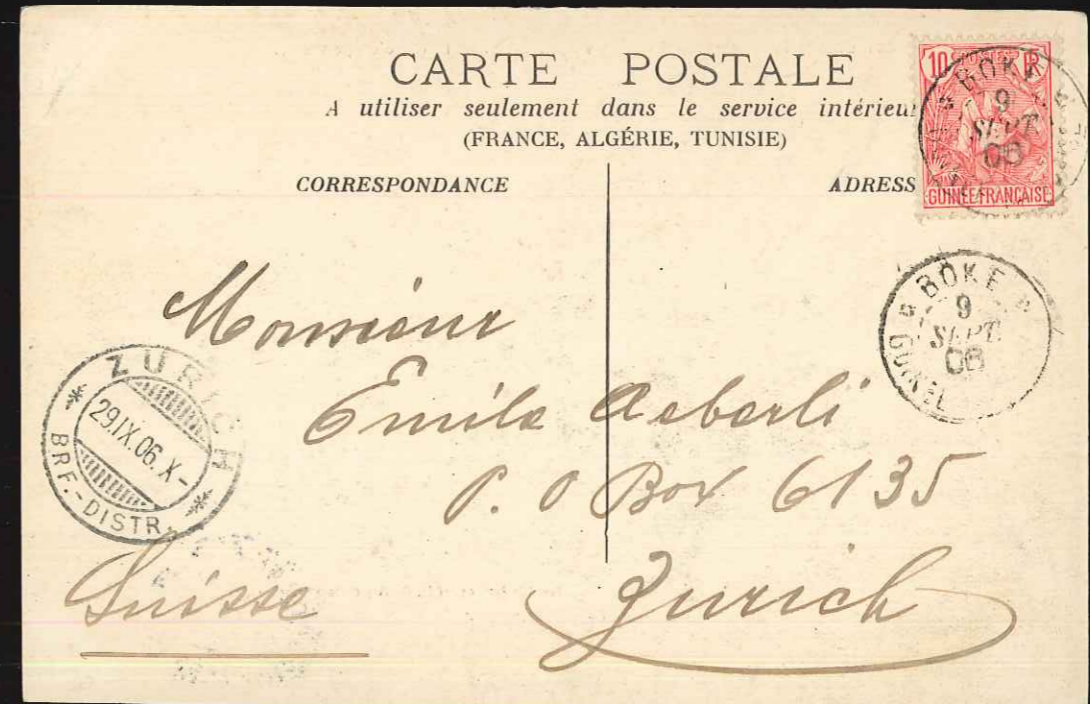 CARTE POSTALE
A utiliser seulement dans le service intérieur
(FRANCE, ALGÉRIE, TUNISIE)
CORRESPONDANCE
ADRESS
10 POSTES RF
GUINÉE FRANÇAISE
BOKE
9
SEPT.
06
BOKE
9
SEPT.
06
ZURICH
29.IX.06.X-
BRF.-DISTR.
Monsieur
Emile Aeberli
P. O Box 6135
Zurich
Suisse